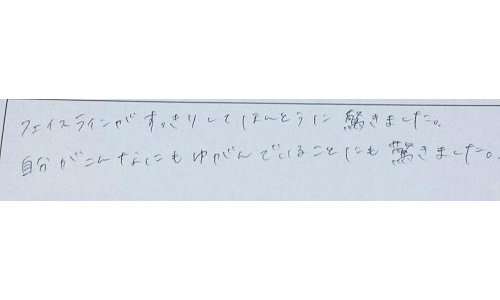 フェイスラインがすっきりしてほんとうに驚きました。
自分がこんなにもゆがんでいることにも驚きました。